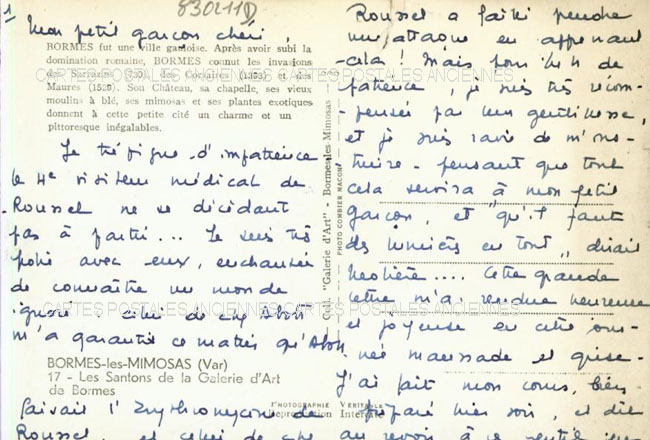 1
830211D
Mon petit garçon chéri,
BORMES fut une ville gauloise. Après avoir subi la
domination romaine, BORMES connut les invasions
des Sarrazins (730), des Corsaires (1393) et des
Maures (1529). Son Château, sa chapelle, ses vieux
moulins à blé, ses mimosas et ses plantes exotiques
donnent à cette petite cité un charme et un
pittoresque inégalables.
CARTES POSTALES ANCIENNES CARTES POSTALES ANCIENNES
Je trépigne d'impatience
le 4e visiteur médical de
Roussel ne se décidant
pas à partir... Je suis très
polie avec eux, enchantée
de connaître un monde
ignoré. Celui de chez Abott
m'a garanti ce matin qu'Abott
CARTES POSTALES ANCIENNES CARTES POSTALES ANCIENNES
BORMES-les-MIMOSAS (Var)
17 - Les Santons de la Galerie d'Art
de Bormes
faisait l'Erythromycine de
Roussel, et celui de chez
Coll. "Galerie d'Art" - Bormes-les-Mimosas
PHOTO COMBIER MACON
PHOTOGRAPHIE VERITABLE
Reproduction Interdite
Roussel a failli prendre
une attaque en apprenant
cela ! Mais pour de
patience, je suis très récom-
pensée par leur gentillesse,
et je suis ravie de m'ins-
truire - pensant que tout
cela servira à mon petit
garçon, et "qu'il faut
des lumières en tout" dirait
Molière.... Cette grande
lettre m'a rendue heureuse
et joyeuse en cette jour-
née maussade et grise.
J'ai fait mon cours, bien
préparé hier soir, et dit
au revoir à